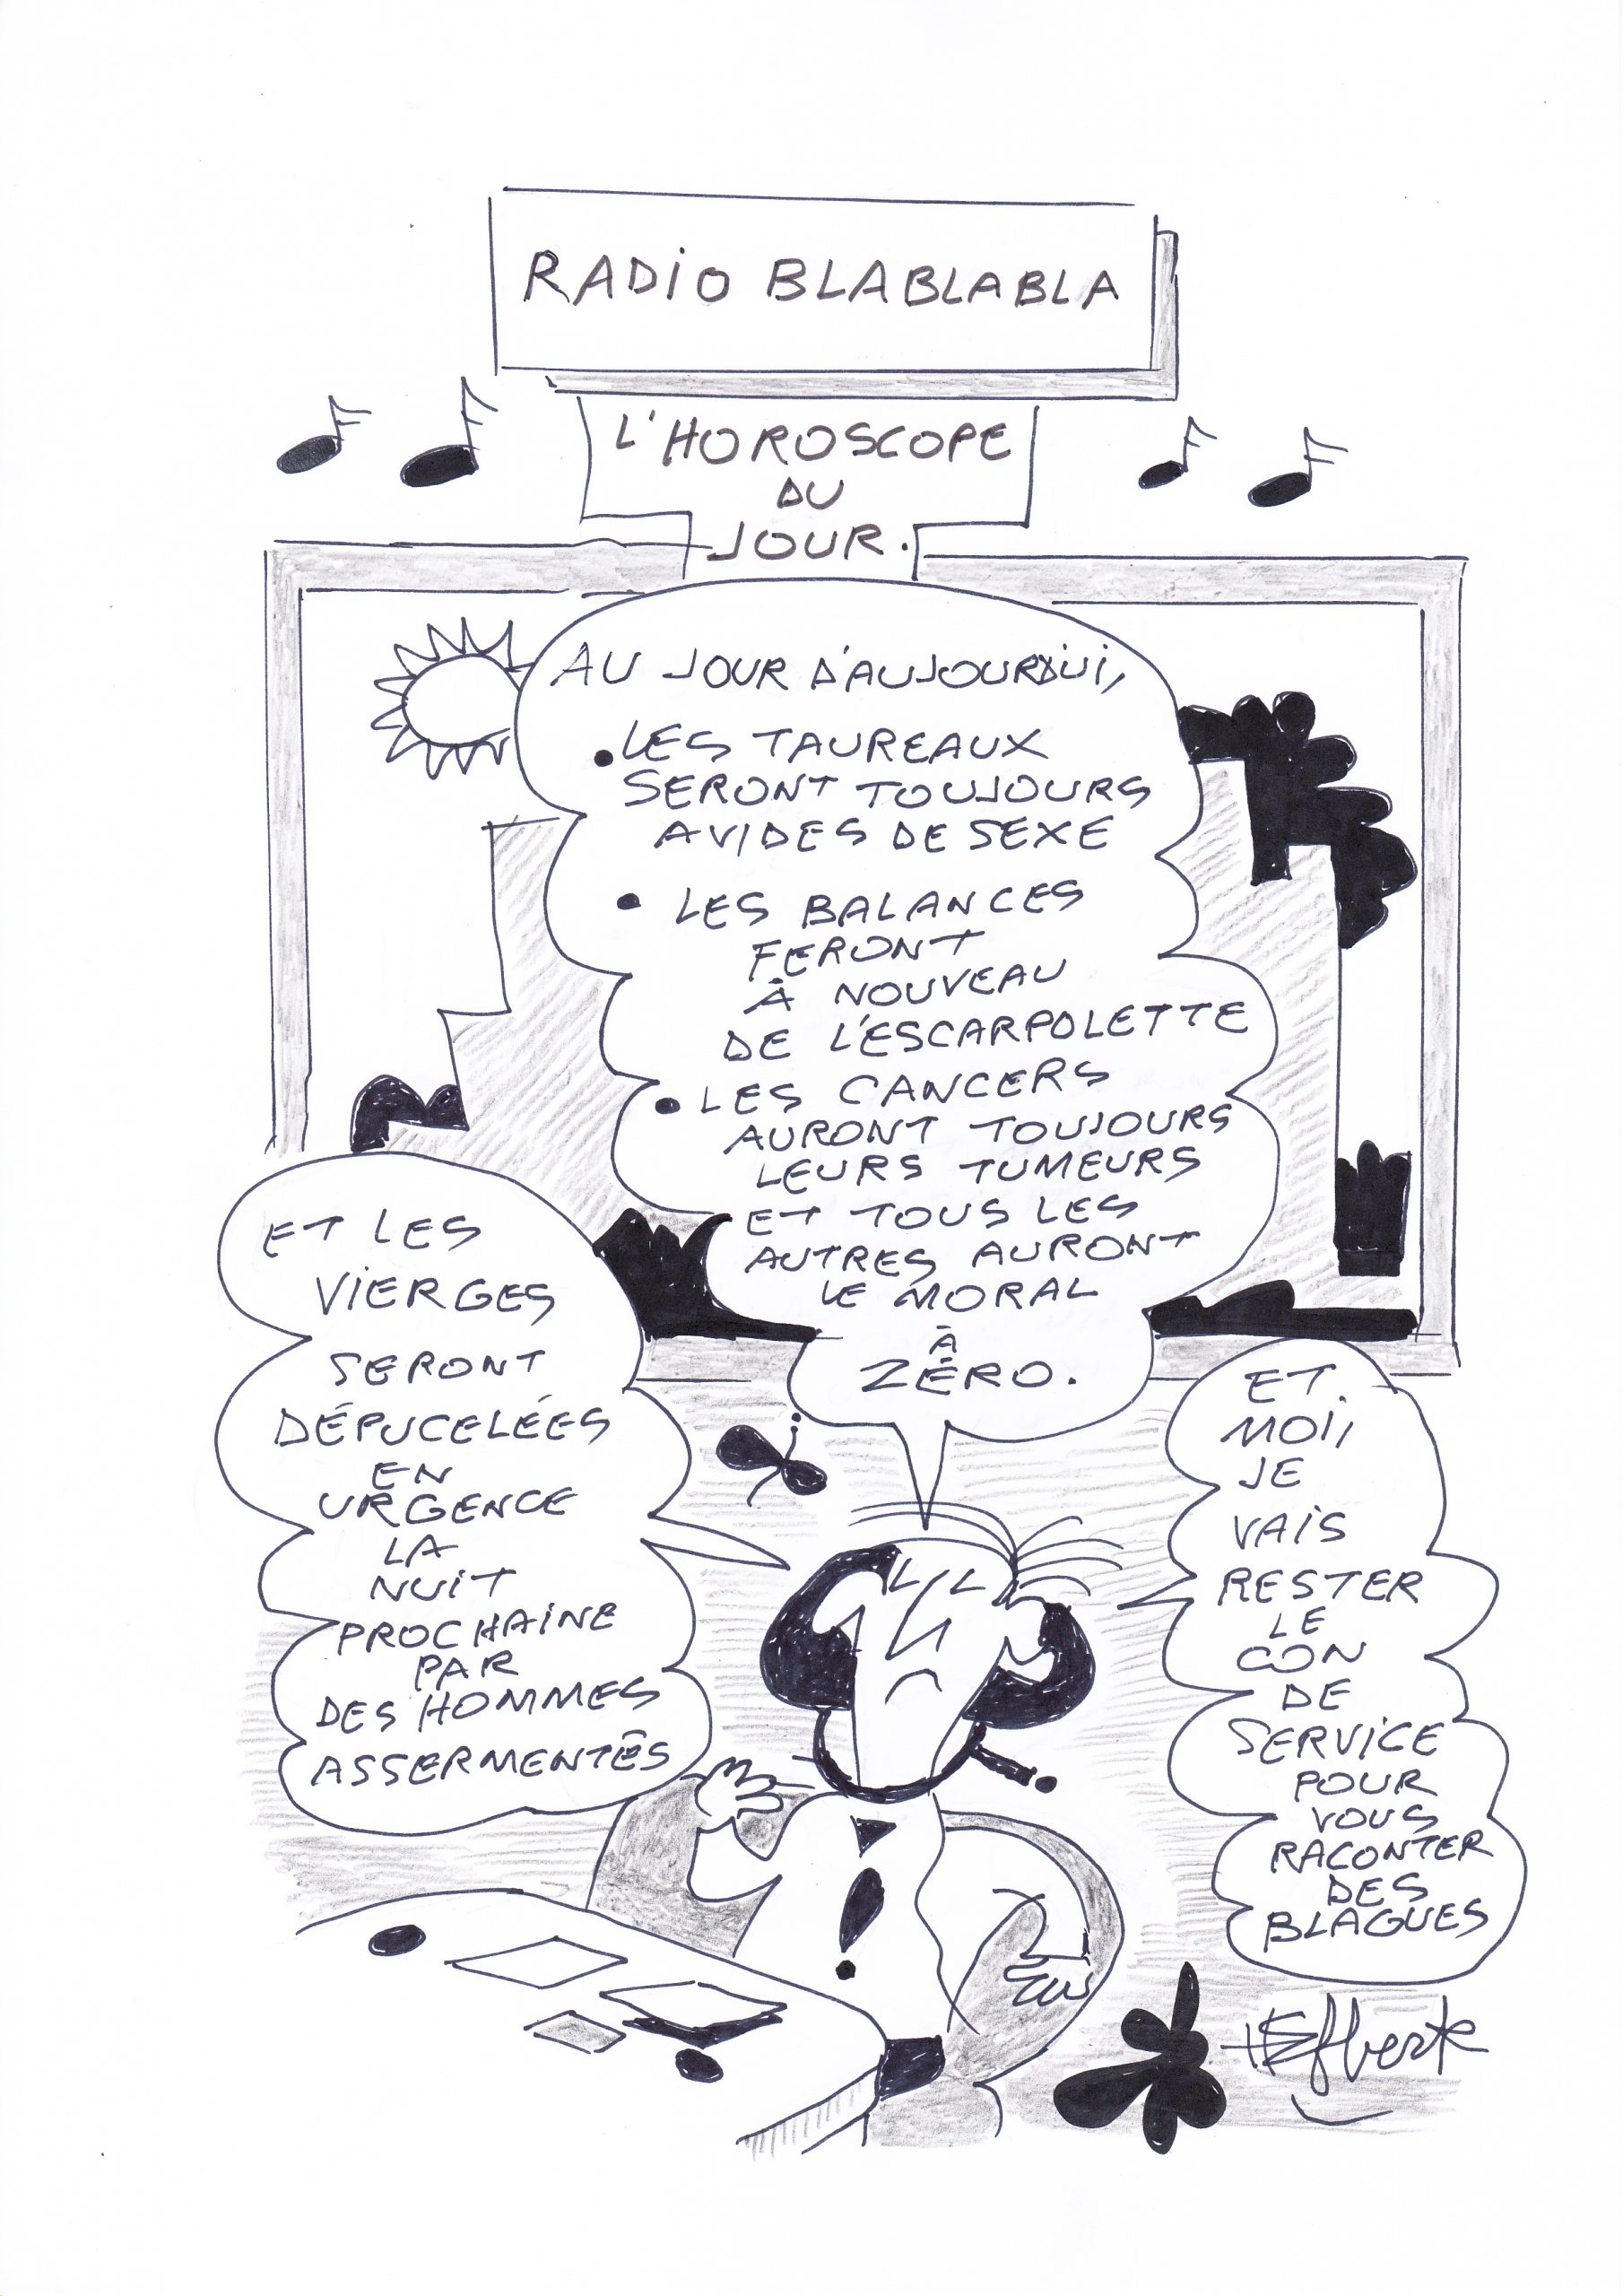 RADIO BLABLABLA
L'HOROSCOPE
DU
JOUR.
AU JOUR D'AUJOURD'UI,
• LES TAUREAUX
SERONT TOUJOURS
AVIDES DE SEXE
• LES BALANCES
FERONT
À NOUVEAU
DE L'ESCARPOLETTE
• LES CANCERS
AURONT TOUJOURS
LEURS TUMEURS
ET TOUS LES
AUTRES AURONT
LE MORAL
À
ZÉRO.
ET LES
VIERGES
SERONT
DÉPUCELÉES
EN
URGENCE
LA
NUIT
PROCHAINE
PAR
DES HOMMES
ASSERMENTÉS
ET
MOI,
JE
VAIS
RESTER
LE
CON
DE
SERVICE
POUR
VOUS
RACONTER
DES
BLAGUES